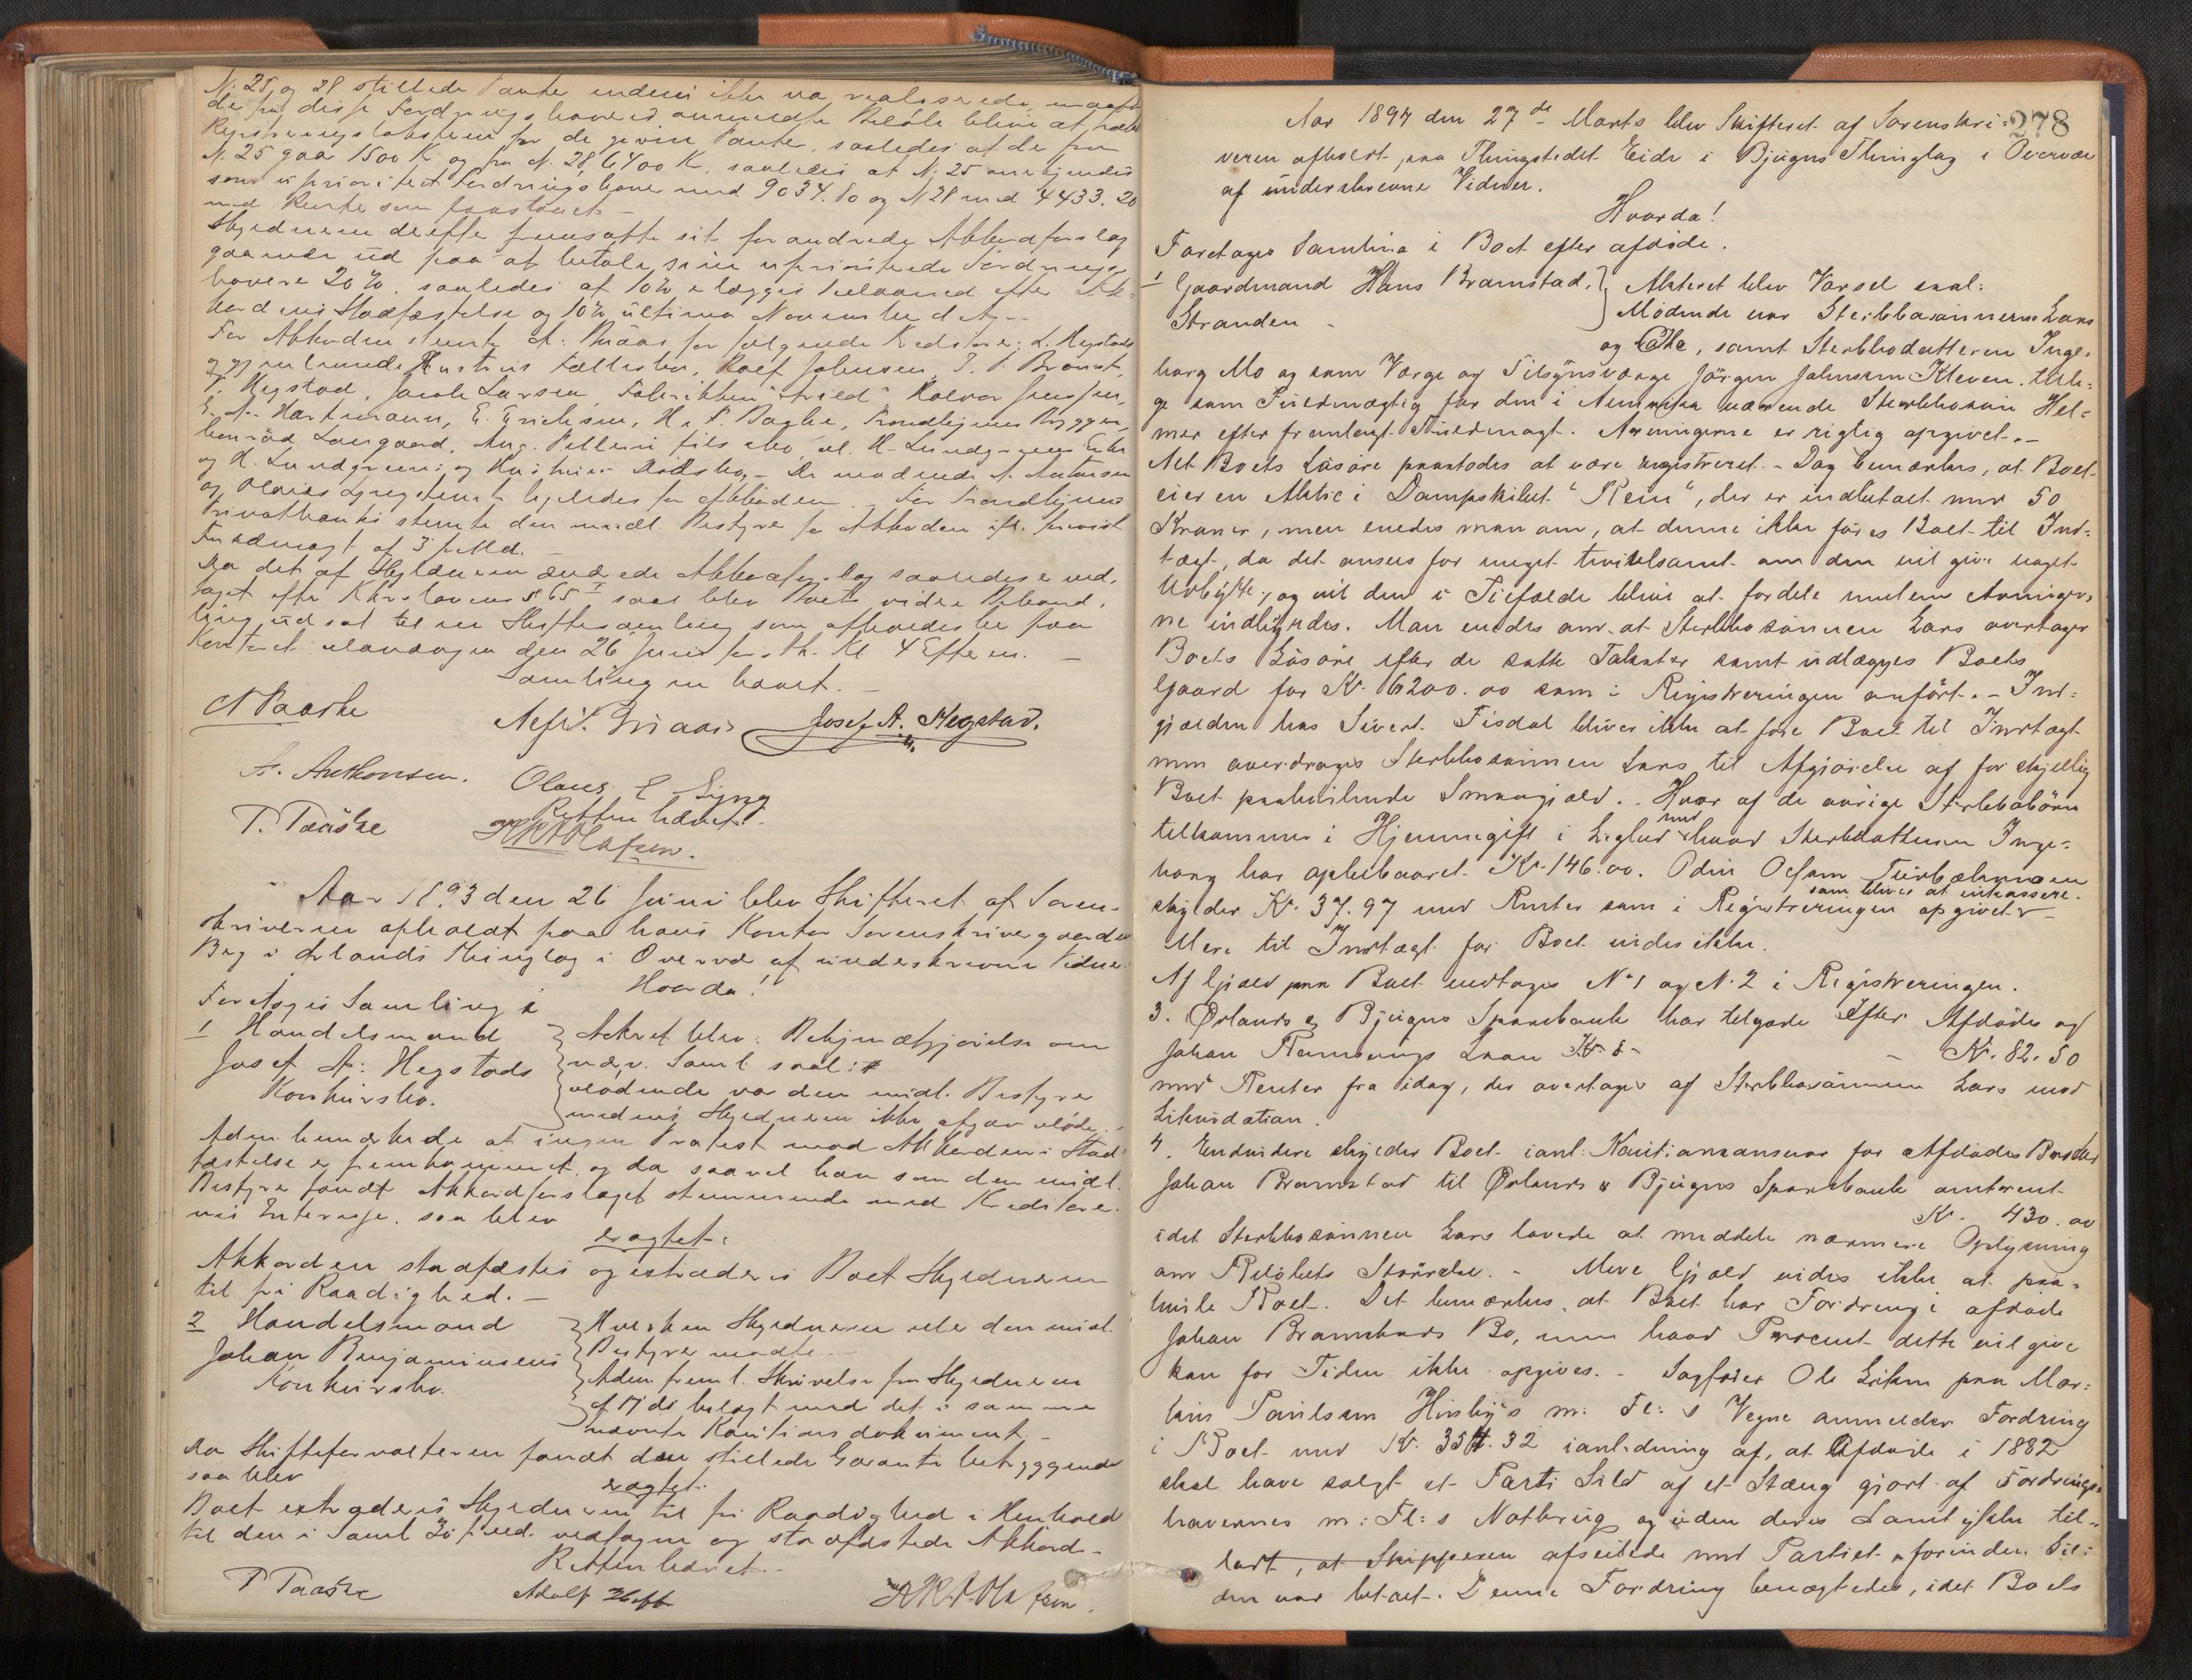 N. 25 og 28 stillede Panter endnu ikke var realiserede, maatte
de for disse Fordringshavere anmeldte Beløb blive at
for de givne Panter, saaledes at de fra
N. 25 gaar 1500 Kr og fra N. 28, 6400 K. saaledes at N. 25
som uprioritert Fordringshaver med 9034.80 og N 28 med 4433.20
med Rente som paastaaet. -
Skyldneren derefter fremsatte sit forandrede Akkordforslag
gaaende ud paa at betale sine uprioriterede Fordrings-
havere 20%, saaledes at 10% erlægges efter Ak-
kordens Stadfæstelse og 10% ultimo November d. A. -
For Akkorden stemte A. Braas for følgende Kreditorer: L. Hegstad
Rolf Johnsen,
Hegstad, Jacob Larsen, Fabrikken
Hartmann, E. Erichsen, H. P. Trondhjems
Aug. Pellerin fils &co,
og H. Lundgreen; og De mødende A. Antonsen
og for Akkorden. For Trondhjems
Privatbank stemte den midl. Bestyrer for Akkorden ifl.
Fuldmagt af 3
Da det af Skyldneren ændrede Akkordforslag saaledes er ved-
taget efter Kkslovens § 65 saa blev Boets videre Behand-
ling udsat til en Skiftesamling som afholdes her paa
Kontoret mandagen den 26 Juni Kl 4 Efterm. -
Samlingen hævet. -
Josef A. Hegstad.
A. Anthonsen. Olaus
P. Paaske Retten hævet.
Aar 1893 den 26 Juni blev Skifteret af Soren-
skriveren afholdt paa hans Kontor Sorenskrivergaarden
Beg i Ørlands Thinglag i Overvær af underskrevne Vidner.
Hvorda!
Foretoges Samling i
1 Handelsmand
Josef A: Hegstads
Konkursbo.
Akteret blev: Bekjendtgjørelse om
nærv. Saml. saal:
Mødende var den midl. Bestyrer
medens Skyldneren ikke afgav Møde. -
Adm. bemærkede at ingen Protest mod Akkordens Stad-
fæstelse er fremkommet, og da saavel han som den midl.
Bestyrer fandt Akkordforslaget stemmende med Kreditorer-
nes Interesse, saa blev
eragtet:
Akkorden stadfæstes og extraderes Boet Skyldneren
til fri Raadighed. -
2 Handelsmand
Johan Benjaminsens
Konkursbo.
Hverken Skyldneren eller den midl.
Bestyrer mødte. -
Adm. freml. Skrivelse fra Skyldneren
af 17 ds belagt med det i samme
nævnte Kautionsdokument. -
Da Skifteforvalteren fandt den stillede Garanti betryggende
saa blev
eragtet:
Boet extraderes Skyldneren til fri Raadighed i Henhold
til den i Saml. vedtagne og stadfæstede Akkord. -
Retten hævet. -
P Paaske Adolf Hoff
278
Aar 1894 den 27de Marts blev Skifteret af Sorenskri-
veren afholdt paa Thingstedet Eide i Bjugns Thinglag i Overvær
af underskrevne Vidner.
Hvorda!
Foretoges Samling i Boet efter afdøde.
1 Gaardmand Hans Bramstad,
Stranden -
Akteret blev Varsel saal:
Mødende var Sterbbosønnerne Lars
og Ole, samt Sterbbodatteren Inge-
borg Mo og som Værge og Tilsynsværge Jørgen Johnsen Kleven, tilli-
ge som Fuldmægtig for den i Amerika værende Sterbbosøn Hel-
mer efter fremlagt Fuldmagt. Arvingerne er rigtig opgivet. -
Alt Boets Løsøre paastodes at være registreret. - Dog bemærkes, at Boet
eier en Aktie i Dampskibet "Rein", der er indbetalt med 50
Kroner, men enedes man om, at denne ikke føres Boet til Ind-
tægt, da det ansees for meget tvivlsomt om den vil give noget
Udbytte, og vil den i Tilfælde blive at fordele mellem Arvinger-
ne indbyrdes. Man enedes om at Sterbbosønnen Lars overtager
Boets Løsøre efter de satte Takster samt udlægges Boets
Gaard for Kr. 6200.00 som i Registreringen anført. - Ind-
gjælden hos Sivert Fisdal bliver ikke at føre Boet til Indtægt
men overdrages Sterbbosønnen Lars til Afgjørelse af forskjellig
Boet paahvilende Smaagjæld. - Hver af de øvrige Sterbbobørn
tilkommer i Hjemmegift i Lighed med hvad Sterbdatteren Inge-
borg har oppebaaret Kr. 146.00. Odin Olsen
skylder Kr. 37.97 med Renter som i Registreringen opgivet
som bliver at inkassere.
Mere til Indtægt for Boet vides ikke.
Af Gjæld paa Boet vedtages N. 1 og N. 2 i Registreringen.
3. Ørlands & Bjugns Sparebank har tilgode efter Afdøde og
Johan Laan Kr. 8- - Kr. 82.50
med Renter fra idag, der overtages af Sterbbosønnen Lars mod
Likvidation.
4. Endvidere skylder Boet ianl: Kautionsansvar for Afdødes Broder
Johan Bramstad til Ørlands & Bjugns Sparebank omtrent
Kr. 430.00
idet Sterbbosønnen Lars lovede at meddele nærmere Oplysning
om Beløbets Størrelse. - Mere Gjæld vides ikke at paa-
hvile Boet. Det bemærkes, at Boet har Fordring i afdøde
Johan Bramstads Bo, men hvad Procent dette vil give
kan for Tiden ikke opgives. - Sagfører Ole Eriksen paa Mar-
tins Paulsen m: Fl: s Vegne anmelder Fordring
i Boet med Kr. 354.32 ianledning af, at Afdøde i 1882
skal have solgt et Parti Sild af et Stæng gjort af Fordrings-
havernes m: Fl: s Notbrug og uden deres Samtykke til-
ladt, at Skipperen afseilede med Partiet, forinden Sil-
den var betalt. Denne Fordring benægtedes, idet Boets